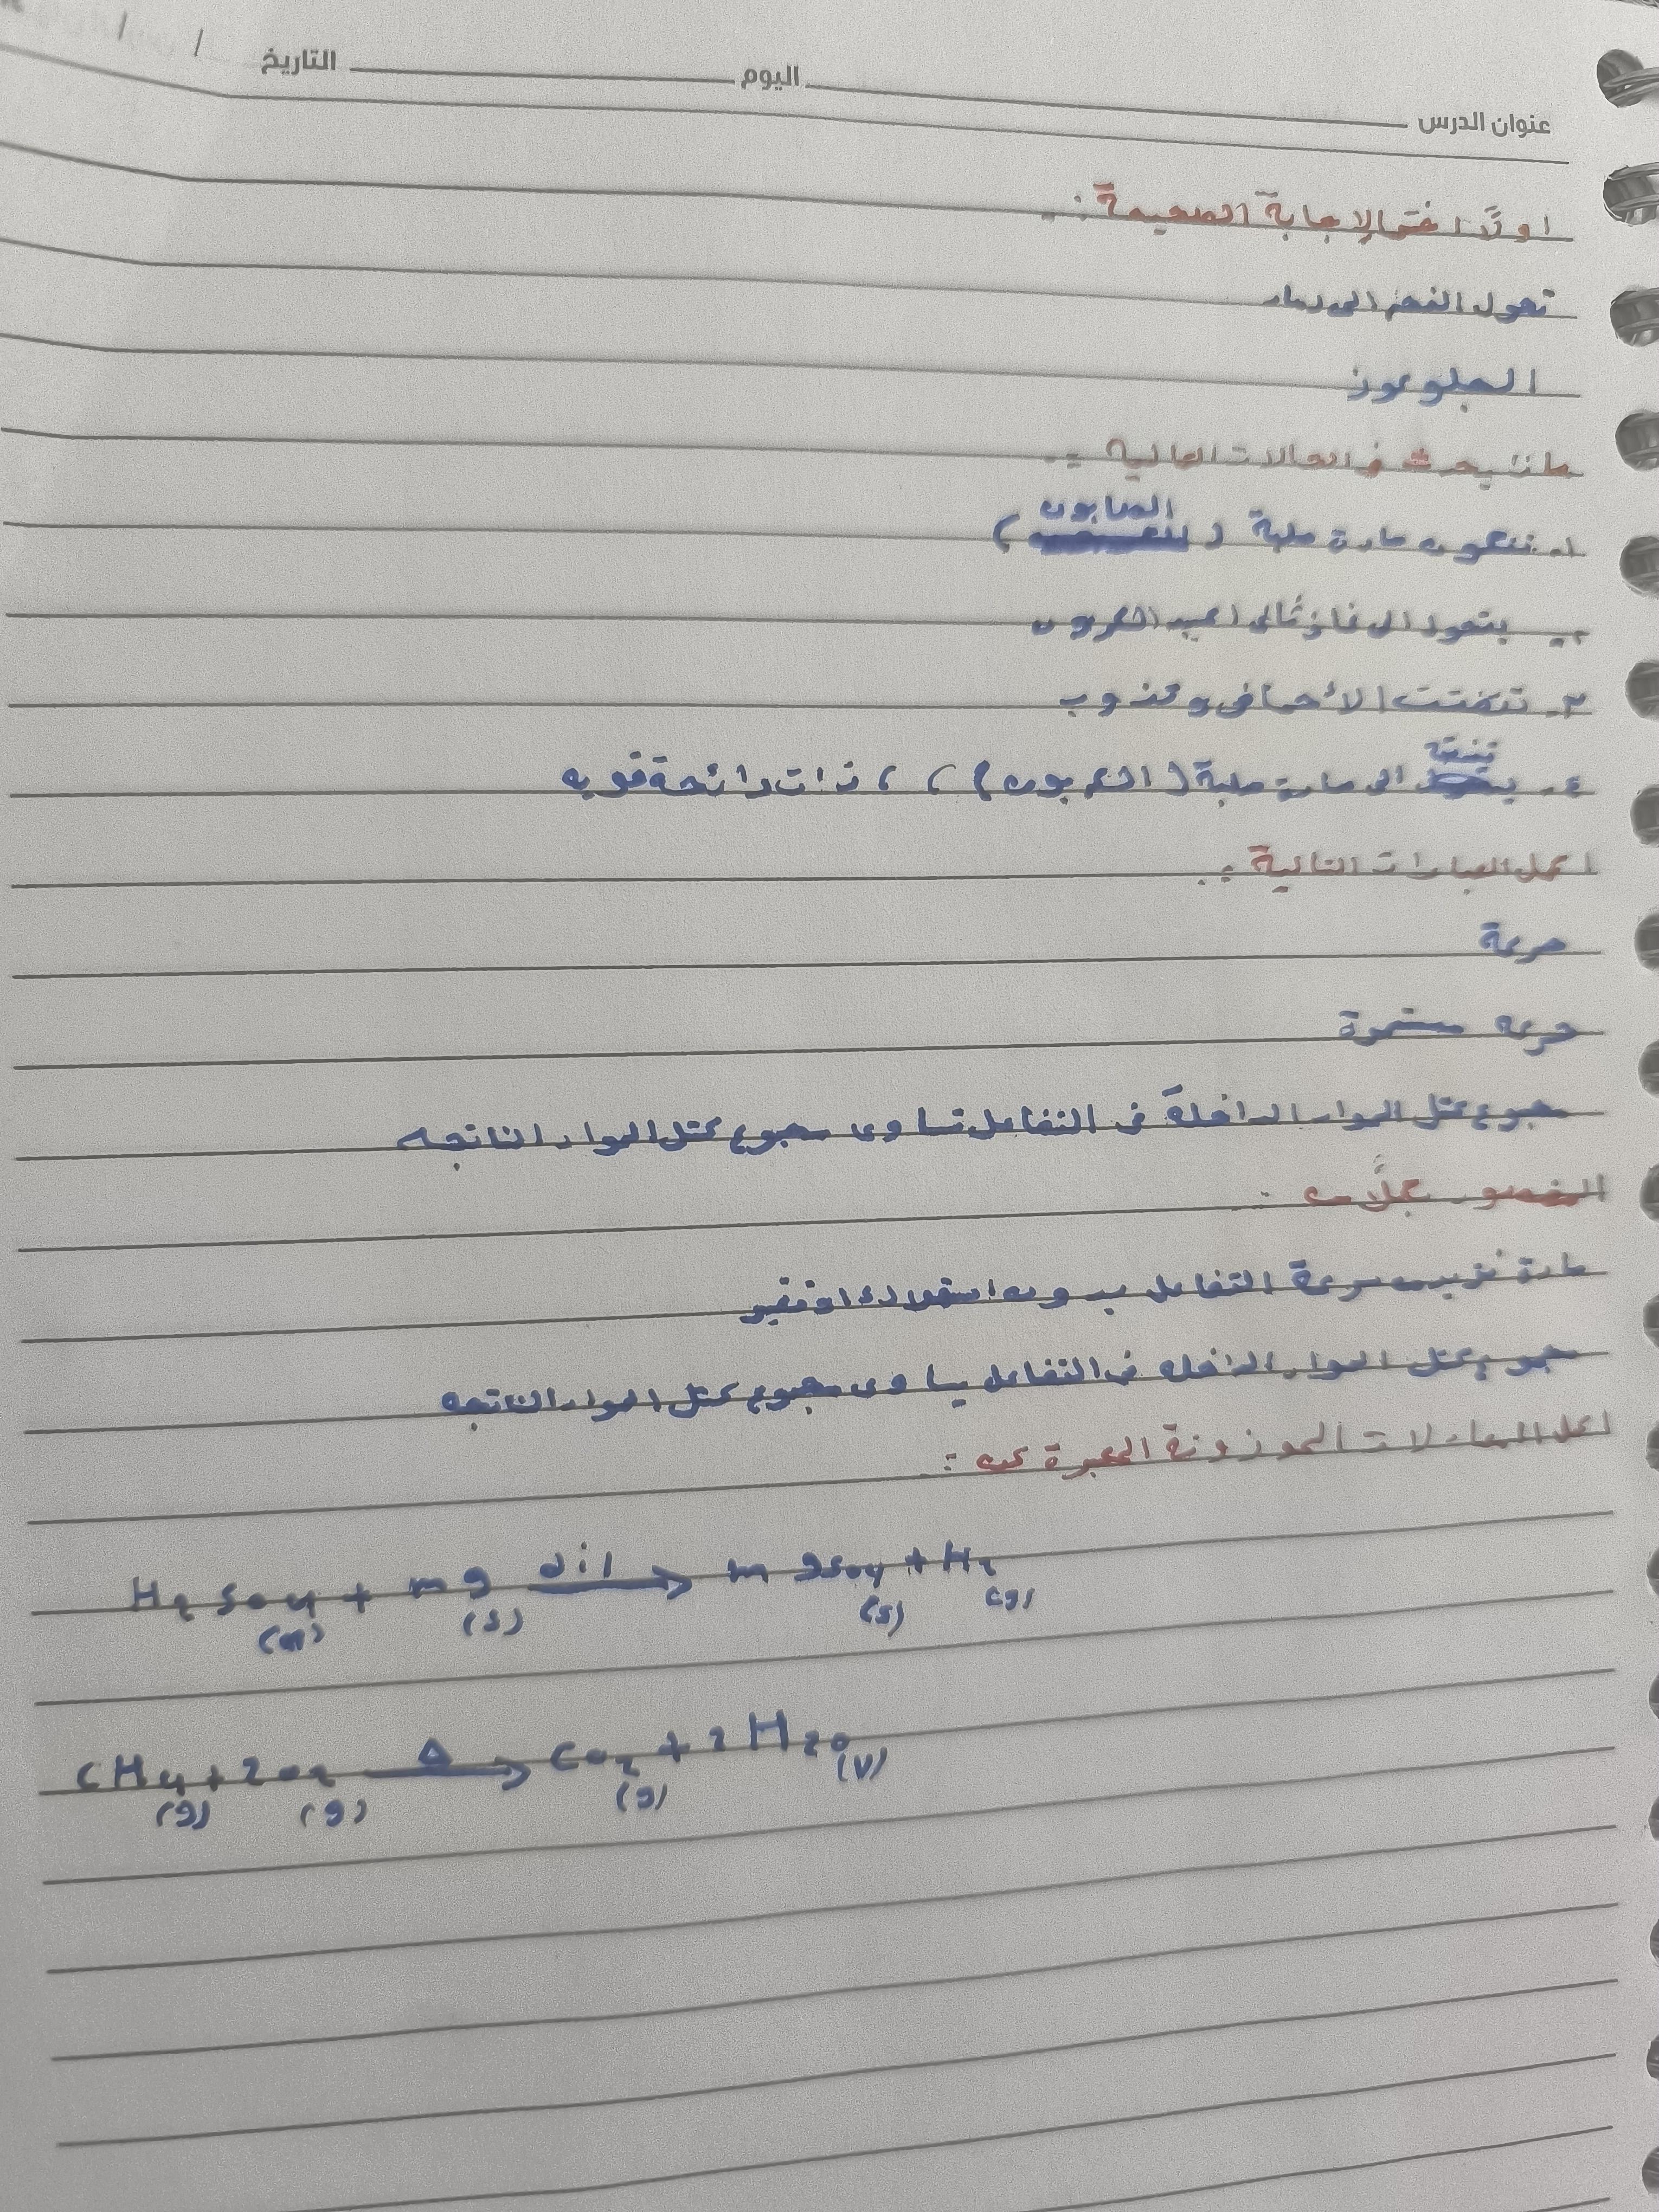 عنوان الدرس اليوم التاريخ /
اولاً اختر الإجابة الصحيحة :.
تحول الفحم الى رماد
الجلوكوز
ماذا يحدث في الحالات التالية :.
١. تتكون مادة صلبة ( الصابون )
٢. يتحول الى غاز ثاني اكسيد الكربون
٣. تتفتت الأحماض وتذوب
٤. الى مادة صلبة ( الكربون ) ، ، ذات رائحة قويه
اكمل العبارات التالية :.
حركة
حركه مستمرة
مجموع كتل المواد الداخلة في التفاعل تساوي مجموع كتل المواد الناتجه
المقصور كلاً من :
مادة تزيد من سرعة التفاعل بدون استهلاك او تغير
مجموع كتل المواد الداخله في التفاعل يساوي مجموع كتل المواد الناتجه
اكمل المعادلات الموزونة المعبرة عن :.
H₂So₄ + mg dil→ mgSo₄ (s) + H₂ (g)
CH₄ (g) + 2o₂ (g) Δ→ Co₂ (g) + 2H₂o (v)